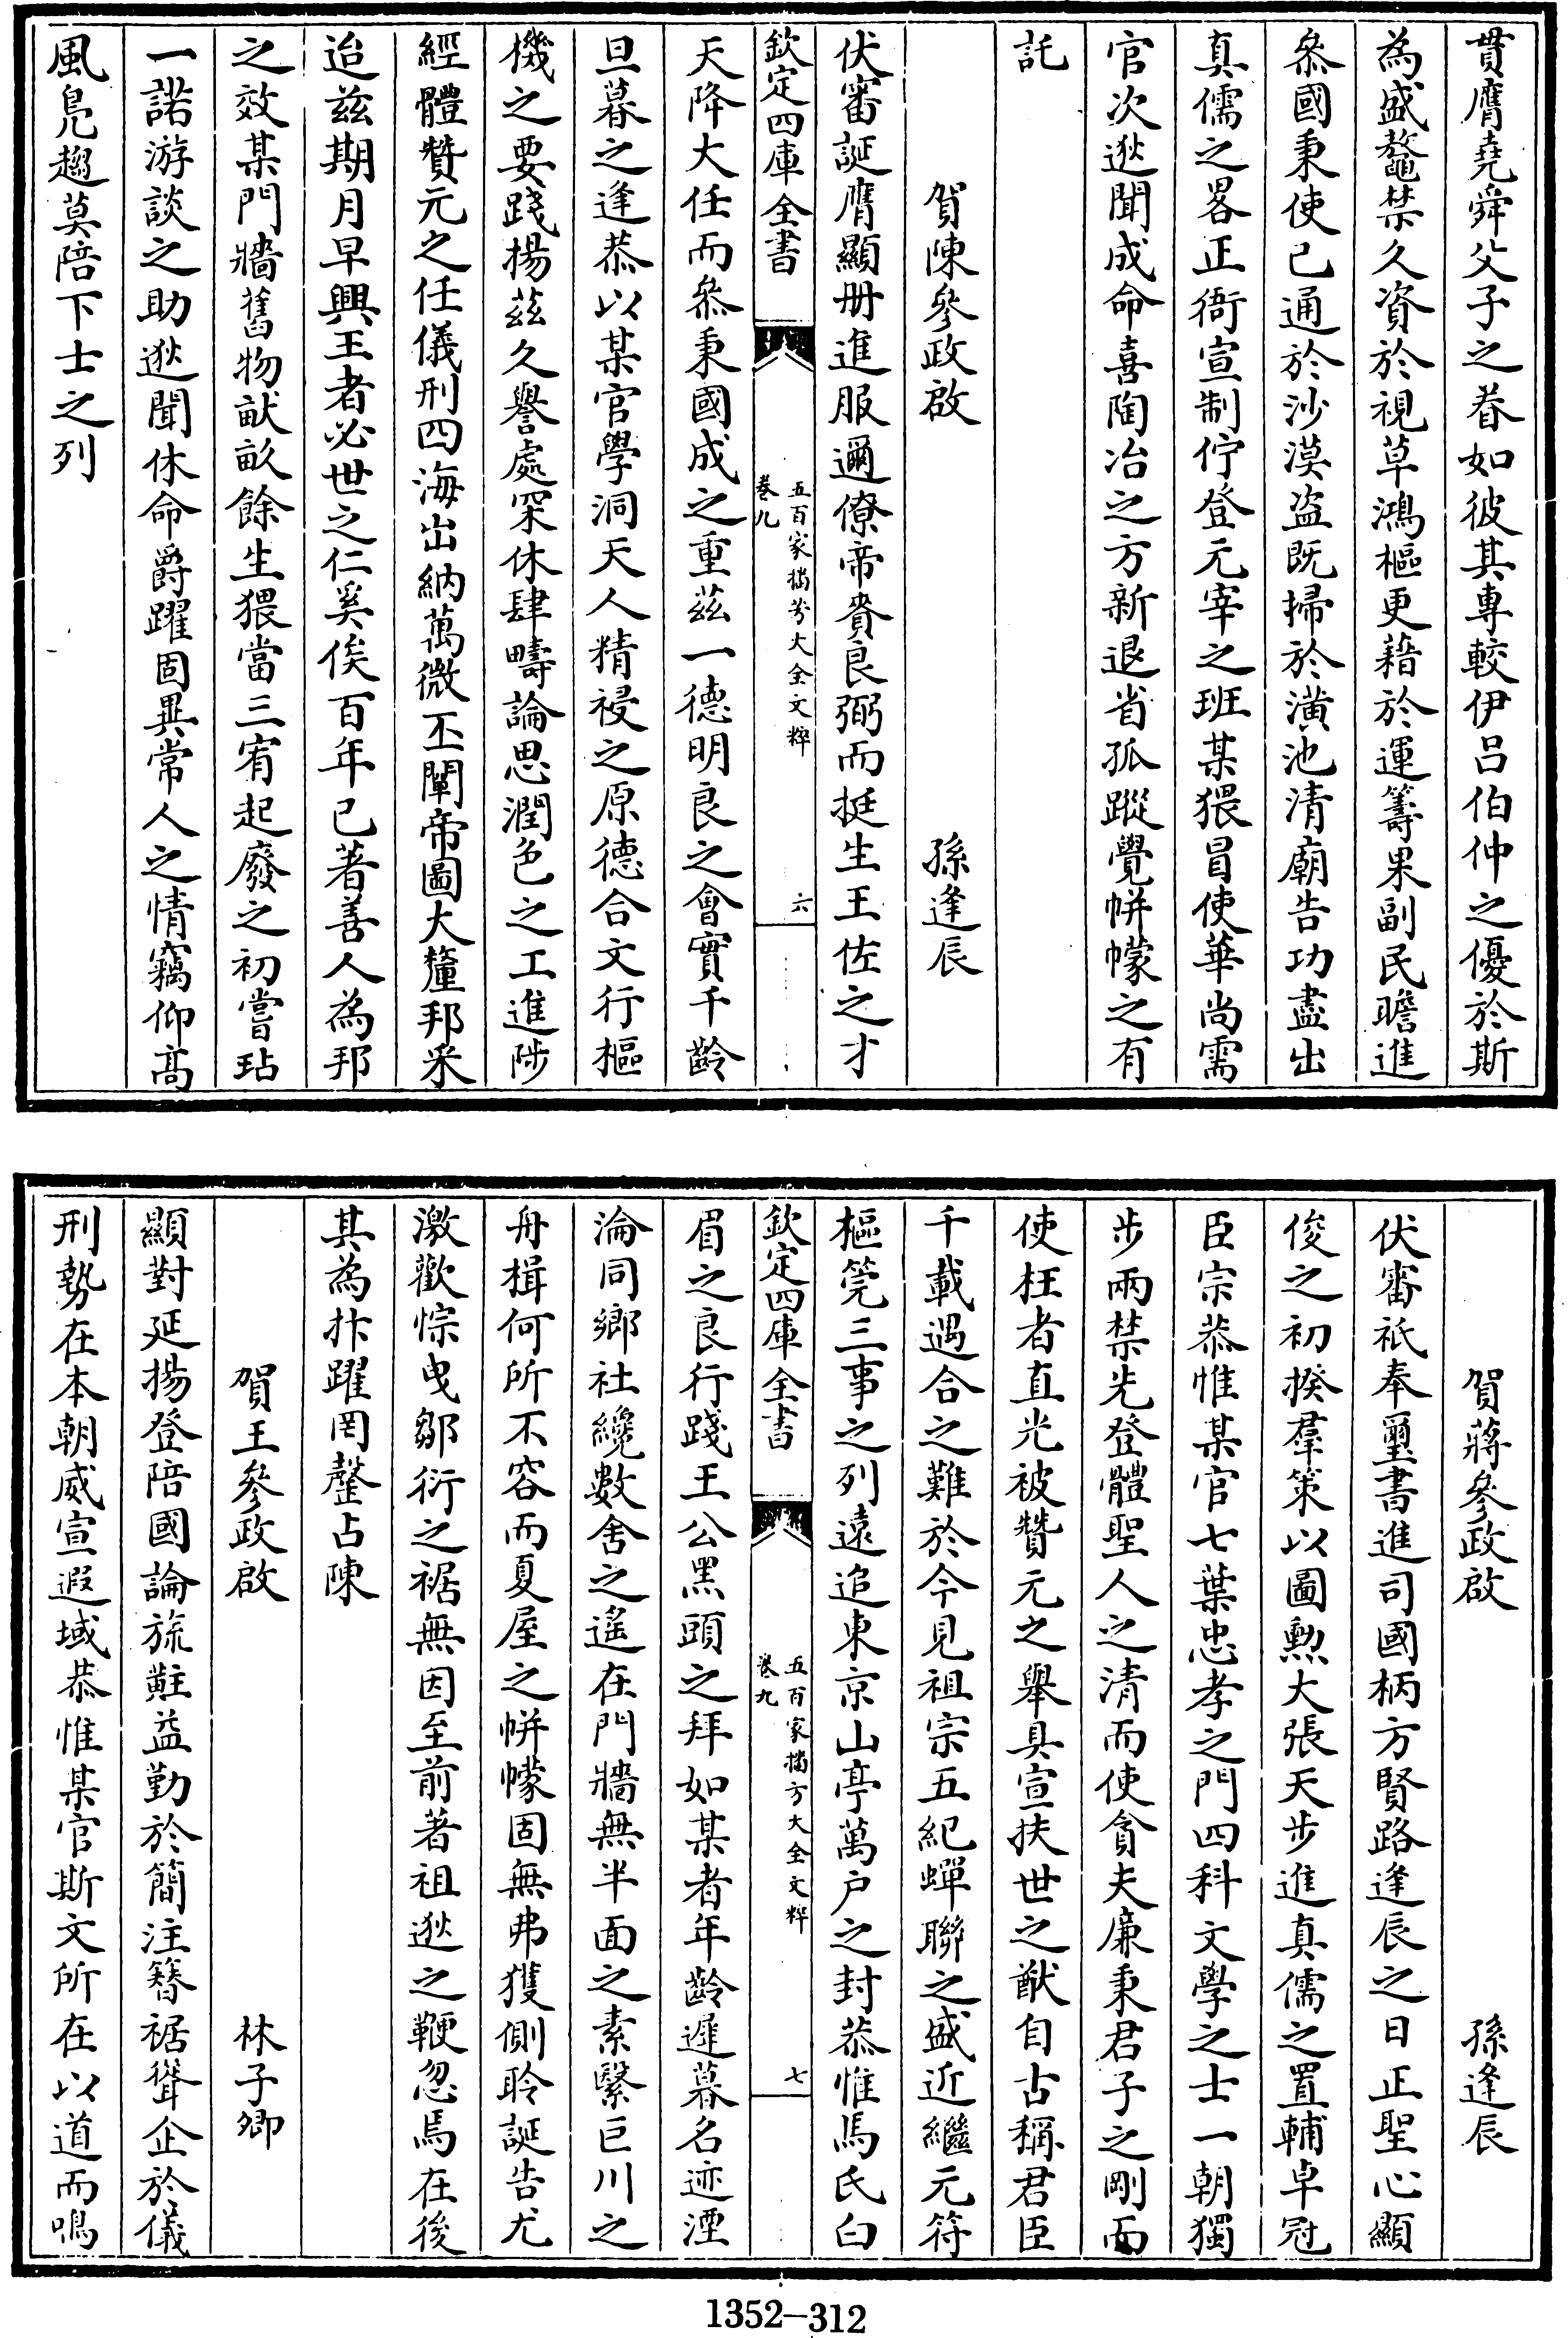 貫膺堯舜父子之眷如彼其專較伊吕伯仲之優於斯
為盛鼇禁久資於視草鴻樞更藉於運籌果副民瞻進
叅國秉使已通於沙漠盗既掃於潢池清廟告功盡出
真儒之畧正衙宣制佇登元宰之班某猥冒使華尚需
官次逖聞成命喜陶冶之方新退省孤蹤覺帡幪之有
託
賀陳參政啟 孫逢辰
伏審誕膺顯册進服邇僚帝賚良弼而挺生王佐之才
欽定四庫全書 五百家播芳大全文粹 卷九 六
天降大任而叅秉國成之重兹一德明良之會實千齡
旦暮之逢恭以某官學洞天人精祲之原德合文行樞
機之要踐揚兹久譽處罙休肆疇論思潤色之工進陟
經體贊元之任儀刑四海出納萬微丕闡帝圖大釐邦采
迨兹期月早興王者必世之仁奚俟百年已著善人為邦
之效某門牆舊物畎畝餘生猥當三宥起廢之初嘗玷
一諾游談之助逖聞休命爵躍固異常人之情竊仰高
風鳧趨莫陪下士之列
賀蔣參政啟 孫逢辰
伏審祇奉璽書進司國柄方賢路逢辰之日正聖心顯
俊之初揆羣策以圖勲大張天步進真儒之置輔卓冠
臣宗恭惟某官七葉忠孝之門四科文學之士一朝獨
步兩禁先登體聖人之清而使貪夫廉秉君子之剛而
使枉者直光被贊元之舉具宣扶世之猷自古稱君臣
千載遇合之難於今見祖宗五紀蟬聯之盛近繼元符
樞筦三事之列遠追東京山亭萬户之封恭惟馬氏白
欽定四庫全書 五百家播芳大全文粹 卷九 七
眉之良行踐王公黑頭之拜如某者年齡遲暮名迹湮
淪同鄉社纔數舍之遙在門牆無半面之素繄巨川之
舟楫何所不容而夏屋之帡幪固無弗獲側聆誕告尤
激歡悰曳鄒衍之裾無因至前著祖逖之鞭忽焉在後
其為抃躍罔罄占陳
賀王參政啟 林子卿
顯對延揚登陪國論旒黈益勤於簡注簪裾聳企於儀
刑勢在本朝威宣遐域恭惟某官斯文所在以道而鳴
1352-312